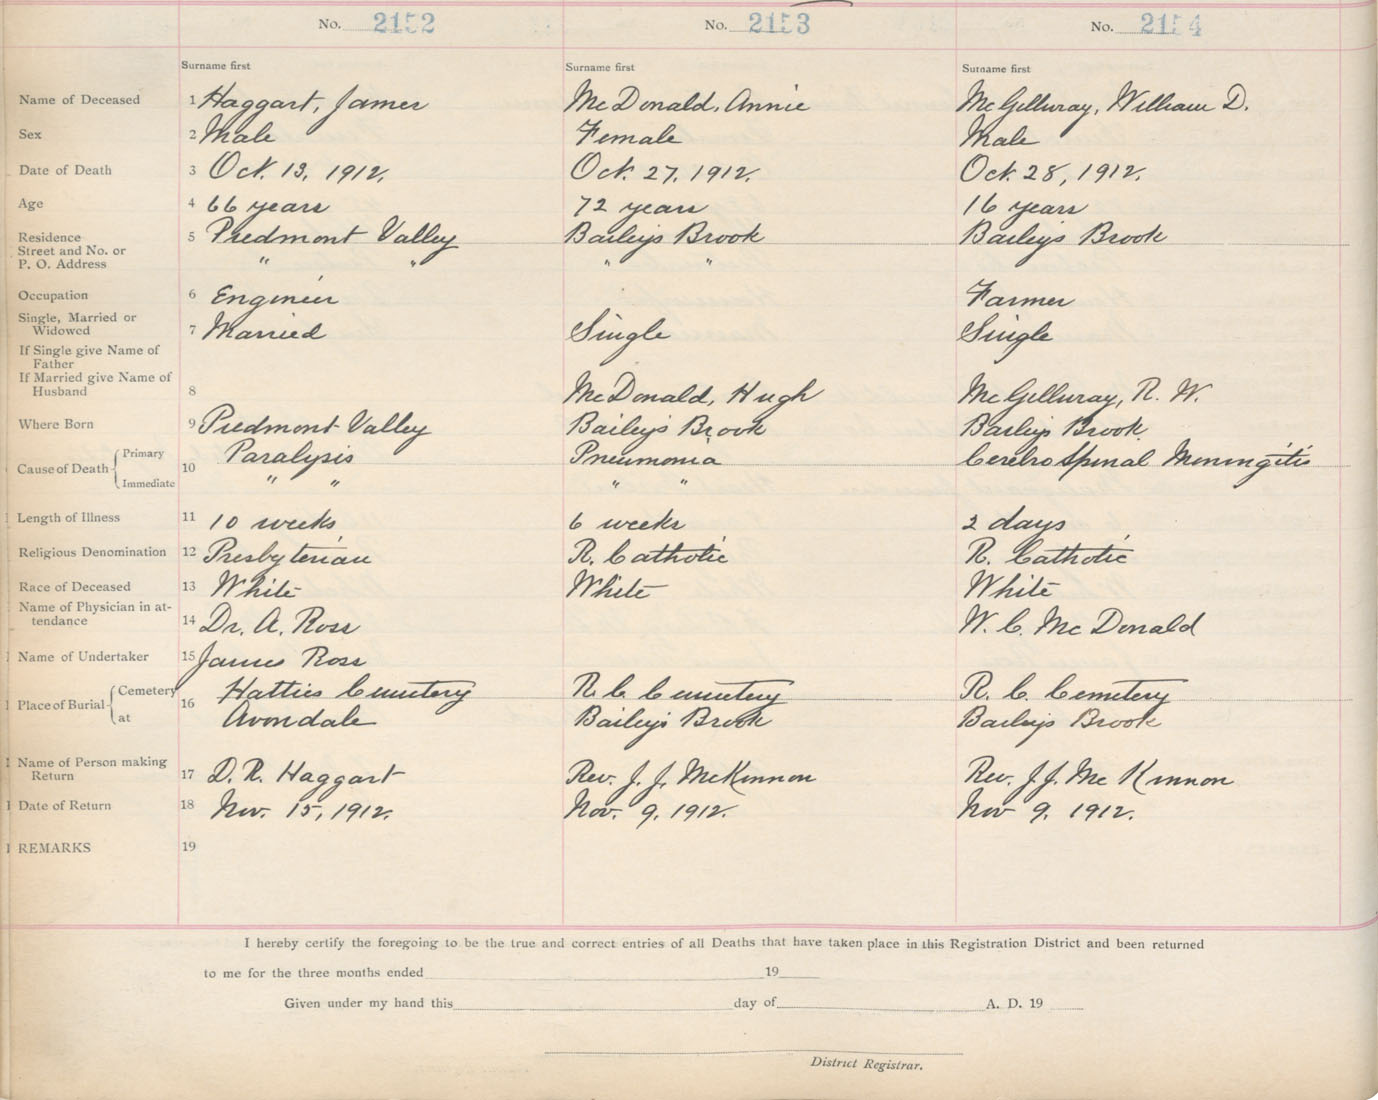 No. 2152 No. 2153 No. 2154
Surname first Surname first Surname first
Name of Deceased 1 Haggart, James McDonald, Annie McGillvray, William D.
Sex 2 Male Female Male
Date of Death 3 Oct. 13, 1912. Oct. 27, 1912. Oct. 28, 1912.
Age 4 66 years 72 years 16 years
Residence 5 Piedmont Valley Baileys Brook Baileys Brook
Street and No. or
P. O. Address " " " "
Occupation 6 Engineer Farmer
Single, Married or
Widowed 7 Married Single Single
If Single give Name of
Father
If Married give Name of
Husband 8 McDonald, Hugh McGillvray, R. W.
Where Born 9 Piedmont Valley Baileys Brook Baileys Brook
Cause of Death Primary 10 Paralysis Pneumonia Cerebro Spinal Meningitis
Immediate " " " "
Length of Illness 11 10 weeks 6 weeks 2 days
Religious Denomination 12 Presbyterian R. Catholic R. Catholic
Race of Deceased 13 White White White
Name of Physician in at-
tendance 14 Dr. A. Ross W. C. McDonald
Name of Undertaker 15 James Ross
Place of Burial Cemetery 16 Hatties Cemetery R. C. Cemetery R. C. Cemetery
at Avondale Baileys Brook Baileys Brook
Name of Person making
Return 17 D. R. Haggart Rev. J. J. McKinnon Rev. J. J. McKinnon
Date of Return 18 Nov. 15, 1912. Nov. 9, 1912. Nov 9, 1912.
REMARKS 19
I hereby certify the foregoing to be the true and correct entries of all Deaths that have taken place in this Registration District and been returned
to me for the three months ended 19
Given under my hand this day of A. D. 19
District Registrar.